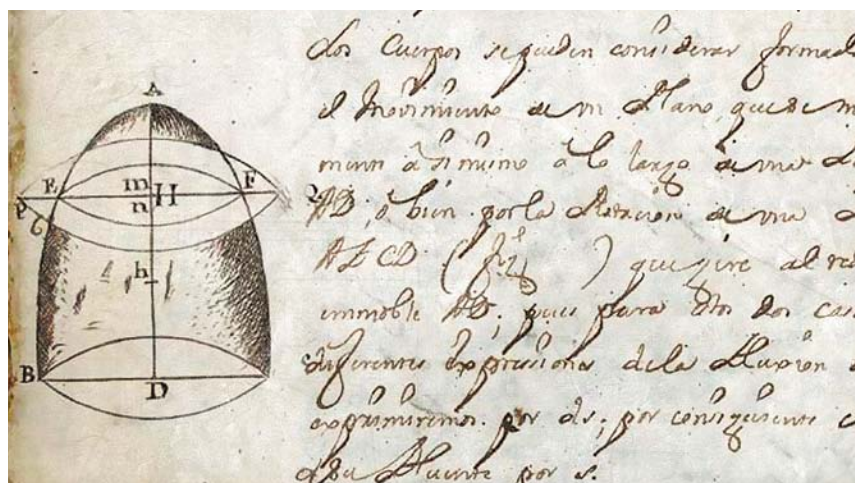 A
E
m
H
F
n
P
h
B
D
Los Cuerpos se pueden considerar formad
el Movimiento de un Plano, que se m
mente à si mismo à lo largo de una L
AD, ò bien por la Rotacion de una
AECD ( ) que gire al re
immoble AD; pues para estos dos cas
diferentes expressiones de la Fluxion
exprimiremos por ds; por consiguiente
Fluente por s.